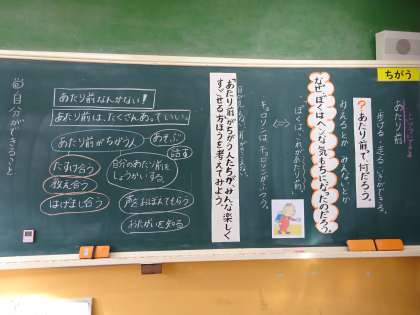 ちがう
あたり前
・歩ける・走る・いきができる。
?あたり前って、何だろう。
みえるとか みんないとか
なぜ、「ぼくはへんな気もちになった」のだろう。
ぼくは、これがあたり前。
⇔
キョロリンは、キョロリンがふつう。
「あたり前」がちがう人たちが、みんな楽しく
すごせる方ほうを考えてみよう。
あたり前なんかない!
あたり前は、たくさんあっていい。
あたり前がちがう人
あそぶ
話す
たすけ合う
教え合う
はげまし合う
自分のあたり前を
しょうかいする。
声をおぼえてもらう
おたがいを知る
自分ができること